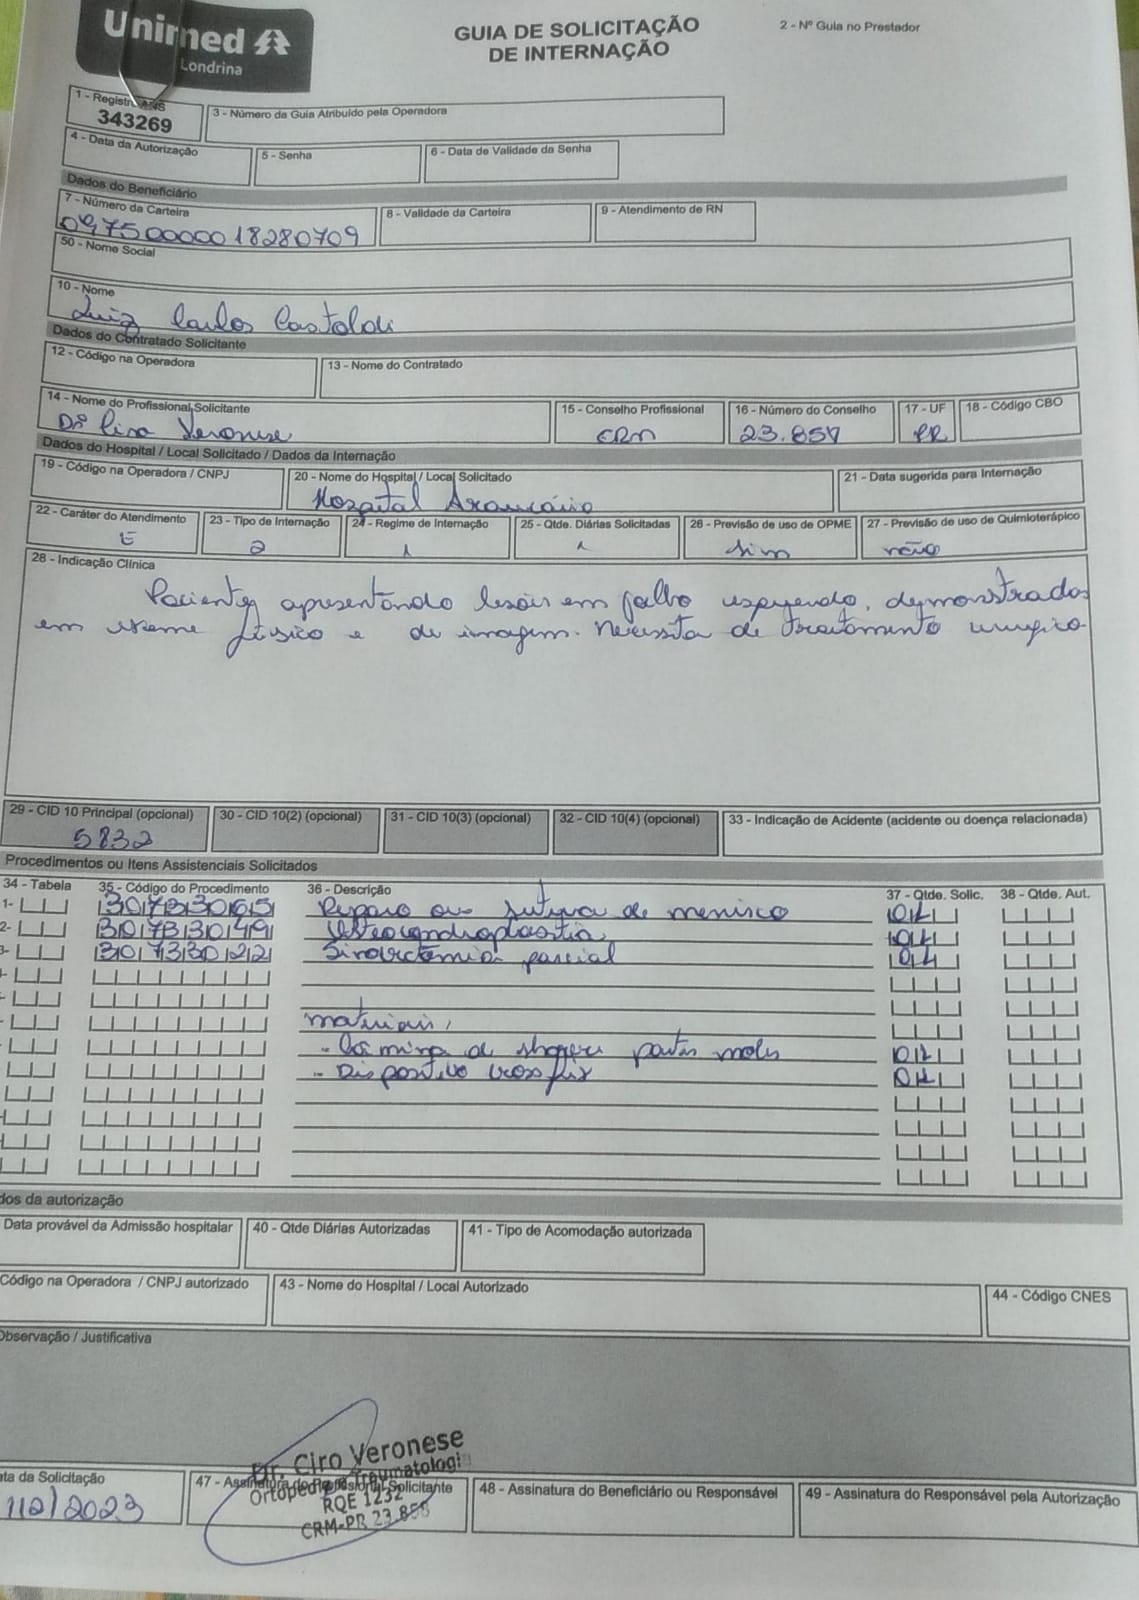 Unimed
Londrina
GUIA DE SOLICITAÇÃO
DE INTERNAÇÃO
2 - Nº Guia no Prestador
1 - Registro ANS
343269
3 - Número da Guia Atribuido pela Operadora
4 - Data da Autorização
5 - Senha
6 - Data de Validade da Senha
Dados do Beneficiário
7 - Número da Carteira
09750000018280709
8 - Validade da Carteira
9 - Atendimento de RN
50 - Nome Social
10 - Nome
Luiz Carlos Castoldi
Dados do Contratado Solicitante
12 - Código na Operadora
13 - Nome do Contratado
14 - Nome do Profissional Solicitante
Dr Ciro Veronese
15 - Conselho Profissional
CRM
16 - Número do Conselho
23.857
17 - UF
PR
18 - Código CBO
Dados do Hospital / Local Solicitado / Dados da Internação
19 - Código na Operadora / CNPJ
20 - Nome do Hospital / Local Solicitado
Hospital Araucária
21 - Data sugerida para Internação
22 - Caráter do Atendimento
E
23 - Tipo de Internação
2
24 - Regime de Internação
1
25 - Qtde. Diárias Solicitadas
1
26 - Previsão de uso de OPME
Sim
27 - Previsão de uso de Quimioterápico
não
28 - Indicação Clínica
Paciente apresentando lesões em joelho esquerdo, demonstrados
em exame físico e de imagem. Necessita de tratamento cirurgico.
29 - CID 10 Principal (opcional)
S832
30 - CID 10(2) (opcional)
31 - CID 10(3) (opcional)
32 - CID 10(4) (opcional)
33 - Indicação de Acidente (acidente ou doença relacionada)
Procedimentos ou Itens Assistenciais Solicitados
34 - Tabela
35 - Código do Procedimento
36 - Descrição
37 - Qtde. Solic.
38 - Qtde. Aut.
1- 30733065 Reparo ou sutura de menisco 01
2- 30733049 Osteocondroplastia 01
3- 30733022 Sinovectomia parcial 01
materiais:
- Lâmina de shaver partes moles 01
- Dispositivo 01
dos da autorização
Data provável da Admissão hospitalar
40 - Qtde Diárias Autorizadas
41 - Tipo de Acomodação autorizada
Código na Operadora / CNPJ autorizado
43 - Nome do Hospital / Local Autorizado
44 - Código CNES
Observação / Justificativa
ata da Solicitação
112/2023
47 - Assinatura do Profissional Solicitante
Dr. Ciro Veronese
Ortopedia e Traumatologi
RQE 1232
CRM-PR
48 - Assinatura do Beneficiário ou Responsável
49 - Assinatura do Responsável pela Autorização